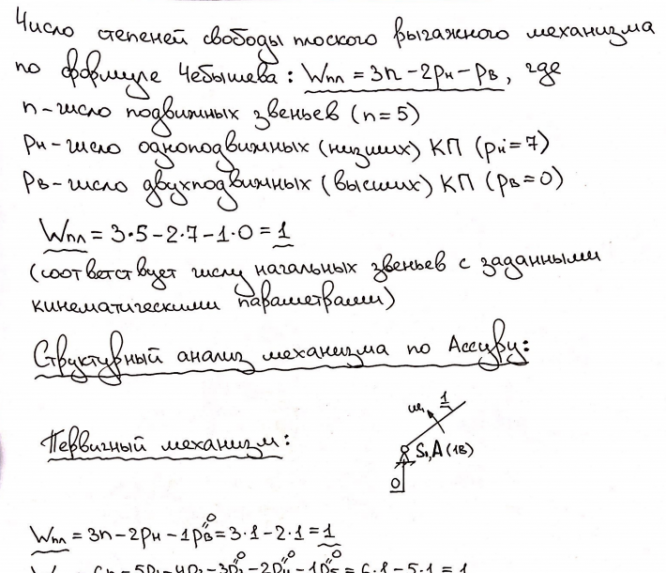 Число степеней свободы плоского рычажного механизма
по формуле Чебышева: Wпл = 3n − 2pн − pв, где
n – число подвижных звеньев (n = 5)
pн – число одноподвижных (низших) КП (pн = 7)
pв – число двухподвижных (высших) КП (pв = 0)
Wпл = 3·5 − 2·7 − 1·0 = 1
(соответствует числу начальных звеньев с заданными
кинематическими параметрами)
Структурный анализ механизма по Ассуру:
ω1 1
Первичный механизм:
S1, A (1В)
0
0
Wпл = 3n − 2pн − 1pв = 3·1 − 2·1 = 1
0 0 0 0
= 6·1 − 5·1 = 1